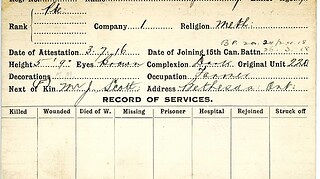 Rank Pte Company 1 Religion Meth.
Date of Attestation 3.7.16 Date of Joining 15th Can. Battn.
Height 5' 9" Eyes Brown Complexion Dark Original Unit 220
Decorations Occupation Farmer
Next of Kin Mr J. Scott Address Bethesda Ont.
RECORD OF SERVICES.
Killed Wounded Died of W. Missing Prisoner Hospital Rejoined Struck off